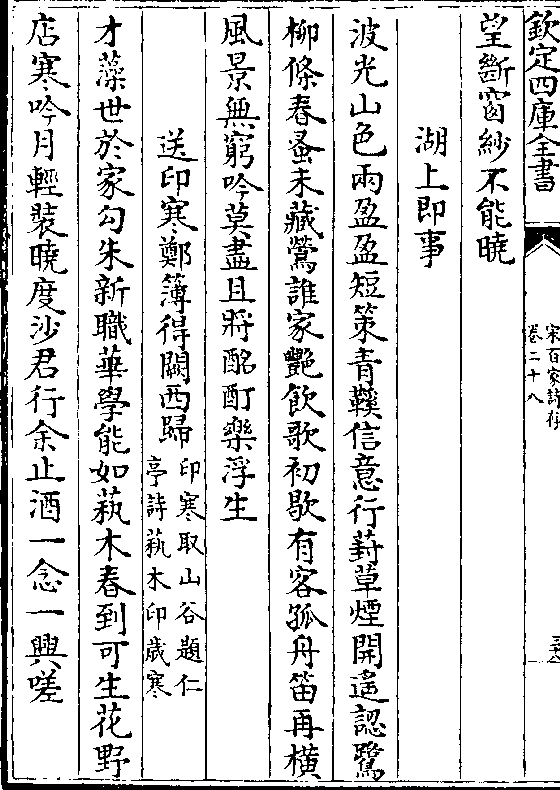 欽定四庫全書
宋百家詩存
卷二十八
望斷窗紗不能曉
湖上即事
波光山色兩盈盈短策青鞵信意行葑草煙開遙認鷺
柳條春蚤未藏鶯誰家艷飲歌初歇有客孤舟笛再橫
風景無窮吟莫盡且將酩酊樂浮生
送印寒鄭簿得闕西歸
印寒取山谷題仁
亭詩蓺木印歲寒
才藻世於家勾朱新職華學能如蓺木春到可生花野
店寒吟月輕裝曉度沙君行余止酒一念一興嗟